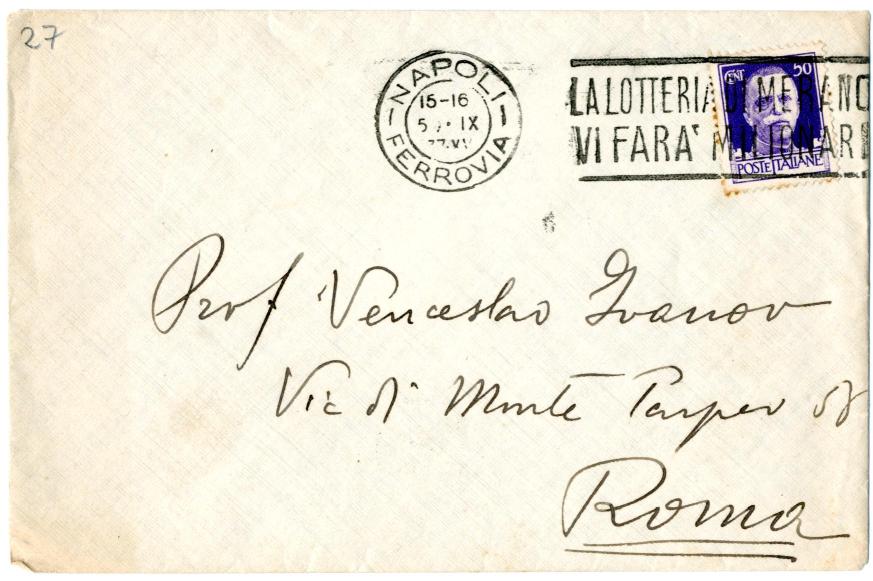 27
NAPOLI
15-16
5 IX
37·XV
FERROVIA
LA LOTTERIA DI MERANO
VI FARA' MILIONARI
CENT 50
POSTE ITALIANE
Prof Venceslao Ivanov
Via di Monte Tarpeo
Roma